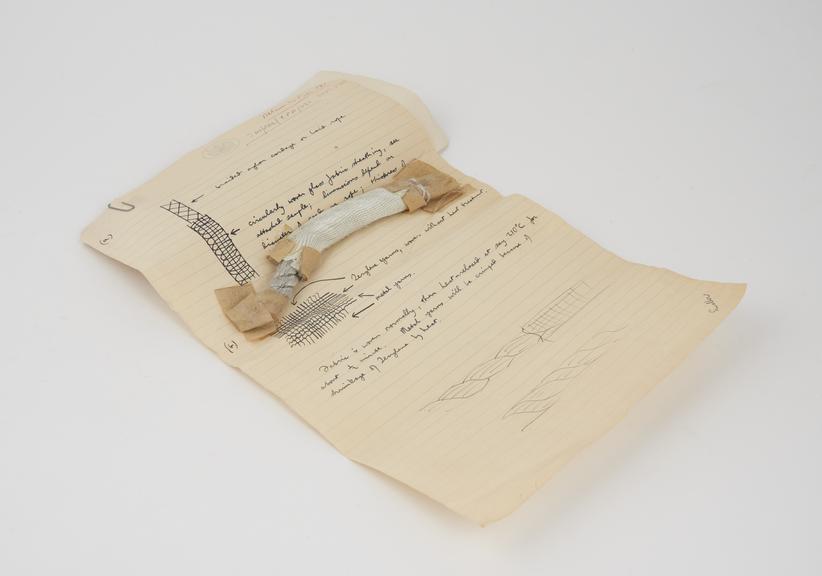 braided nylon cordage or laid rope.
(a)
circularly woven glass fabric sheathing, see
attached sample; dimensions depend on
diameter rope; thickness
Terylene yarns, woven without heat treatment.
metal yarns.
(b)
Fabric is woven normally, then heat-relaxed at say 210°C for
about ½ minute. Metal yarns will be crimped because of
shrinkage of Terylene by heat.